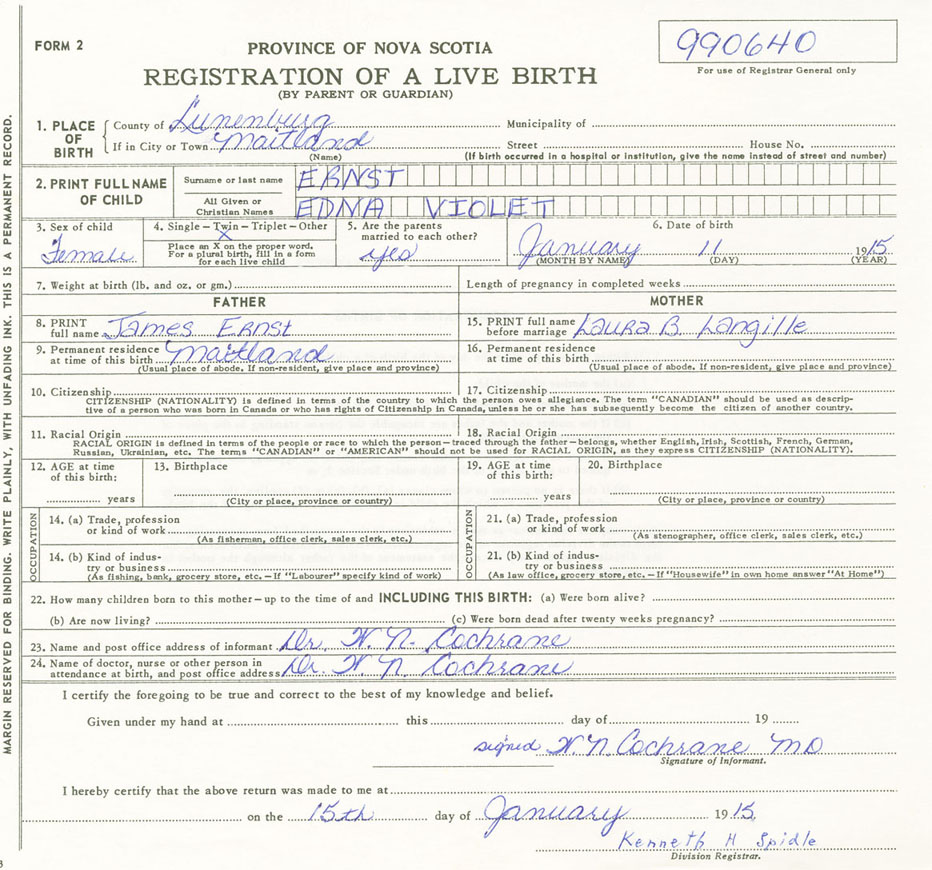 FORM 2
990640
For use of Registrar General only
PROVINCE OF NOVA SCOTIA
REGISTRATION OF A LIVE BIRTH
(BY PARENT OR GUARDIAN)
MARGIN RESERVED FOR BINDING. WRITE PLAINLY, WITH UNFADING INK. THIS IS A PERMANENT RECORD.
1. PLACE OF BIRTH County of Lunenburg Municipality of
If in City or Town Maitland Street House No.
(Name) (If birth occurred in a hospital or institution, give the name instead of street and number)
2. PRINT FULL NAME OF CHILD Surname or last name ERNST
All Given or Christian Names EDNA VIOLET
3. Sex of child Female
4. Single – Twin – Triplet – Other
X
Place an X on the proper word.
For a plural birth, fill in a form
for each live child
5. Are the parents
married to each other?
yes
6. Date of birth
January 11 1915
(MONTH BY NAME) (DAY) (YEAR)
7. Weight at birth (lb. and oz. or gm.) Length of pregnancy in completed weeks
FATHER MOTHER
8. PRINT
full name James Ernst
15. PRINT full name
before marriage Laura B. Langille
9. Permanent residence
at time of this birth Maitland
(Usual place of abode. If non-resident, give place and province)
16. Permanent residence
at time of this birth
(Usual place of abode. If non-resident, give place and province)
10. Citizenship 17. Citizenship
CITIZENSHIP (NATIONALITY) is defined in terms of the country to which the person owes allegiance. The term "CANADIAN" should be used as descrip-
tive of a person who was born in Canada or who has rights of Citizenship in Canada, unless he or she has subsequently become the citizen of another country.
11. Racial Origin 18. Racial Origin
RACIAL ORIGIN is defined in terms of the people or race to which the person – traced through the father – belongs, whether English, Irish, Scottish, French, German,
Russian, Ukrainian, etc. The terms "CANADIAN" or "AMERICAN" should not be used for RACIAL ORIGIN, as they express CITIZENSHIP (NATIONALITY).
12. AGE at time
of this birth:
years
13. Birthplace
(City or place, province or country)
19. AGE at time
of this birth:
years
20. Birthplace
(City or place, province or country)
OCCUPATION
14. (a) Trade, profession
or kind of work
(As fisherman, office clerk, sales clerk, etc.)
14. (b) Kind of indus-
try or business
(As fishing, bank, grocery store, etc. – If "Labourer" specify kind of work)
OCCUPATION
21. (a) Trade, profession
or kind of work
(As stenographer, office clerk, sales clerk, etc.)
21. (b) Kind of indus-
try or business
(As law office, grocery store, etc. – If "Housewife" in own home answer "At Home")
22. How many children born to this mother – up to the time of and INCLUDING THIS BIRTH: (a) Were born alive?
(b) Are now living? (c) Were born dead after twenty weeks pregnancy?
23. Name and post office address of informant Dr. W. N. Cochrane
24. Name of doctor, nurse or other person in
attendance at birth, and post office address Dr. W N. Cochrane
I certify the foregoing to be true and correct to the best of my knowledge and belief.
Given under my hand at this day of 19
signed W. N. Cochrane MD
Signature of Informant.
I hereby certify that the above return was made to me at
on the 15th day of January 1915
Kenneth H Spidle
Division Registrar.
3